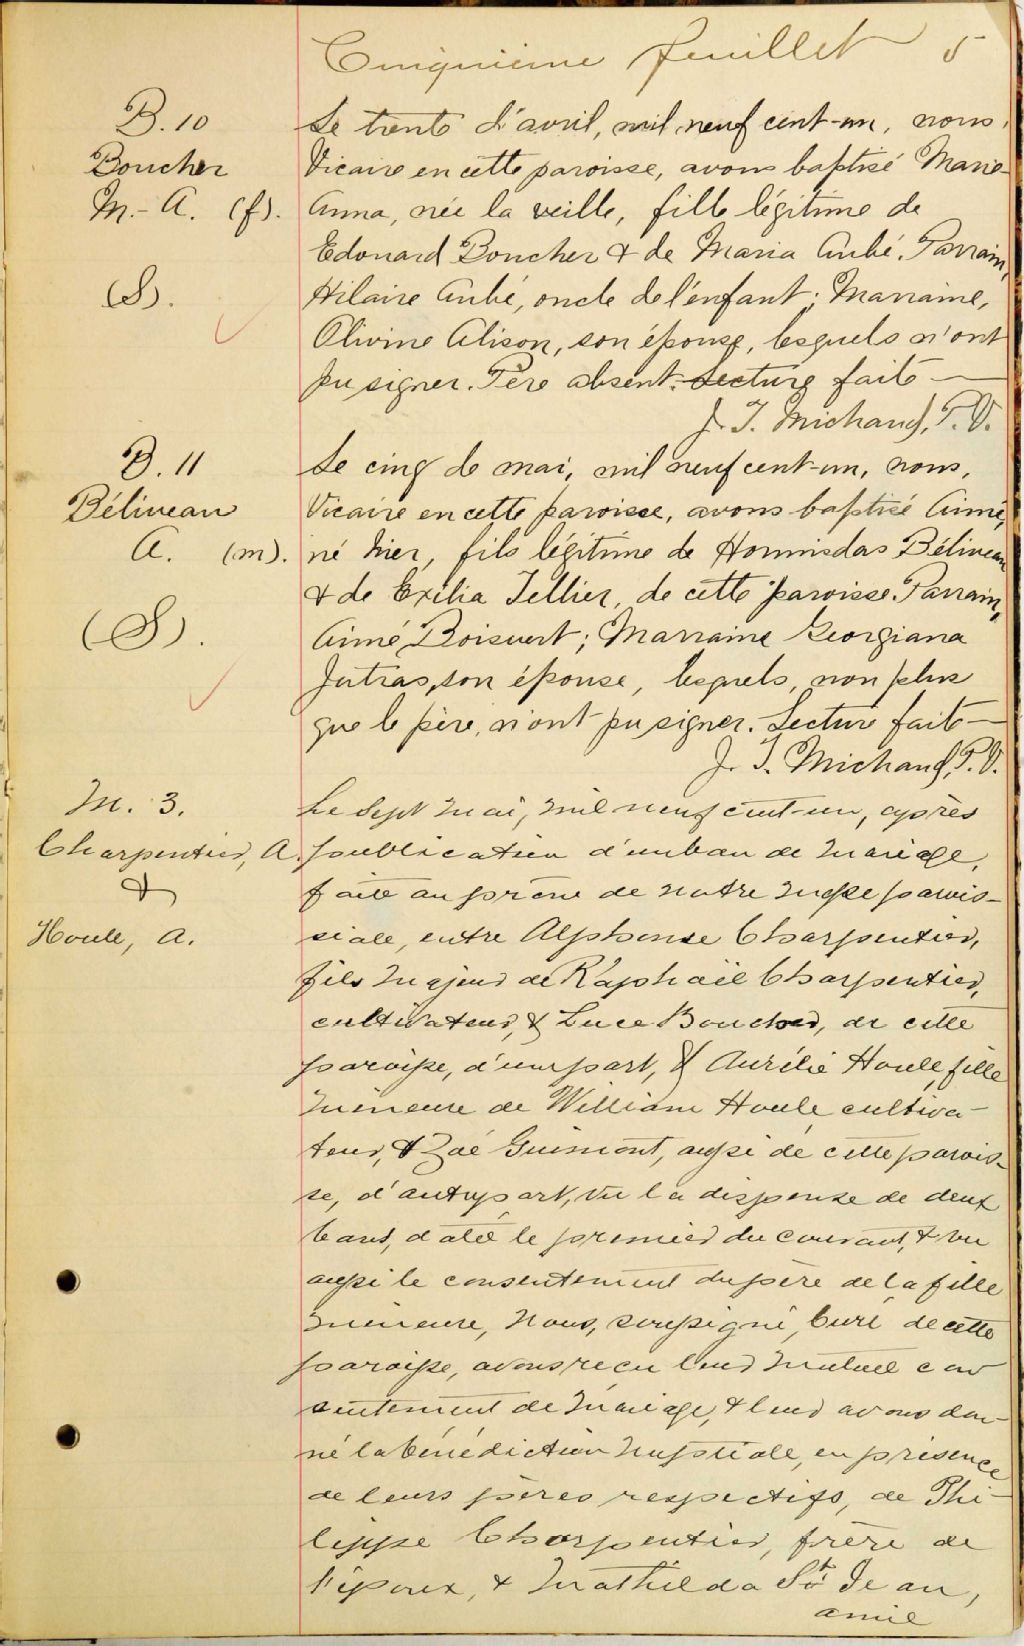 Cinquième feuillet 5
B. 10
Boucher
M.- A. (f).
(S).
Le trente d'avril, mil neuf cent-un, nous,
Vicaire en cette paroisse, avons baptisé Marie-
Anna, née la veille, fille légitime de
Edouard Boucher & de Maria Aubé. Parrain,
Hilaire Aubé, oncle de l'enfant; Marraine,
Olivine Alison, son épouse, lesquels n'ont
pu signer. Père absent. Lecture faite —
J. T. Michaud, P. V.
B. 11
Béliveau
A. (m).
(S).
Le cinq de mai, mil neuf cent-un, nous,
Vicaire en cette paroisse, avons baptisé Aimé,
né hier, fils légitime de Hormisdas Béliveau
& de Exilia Tellier, de cette paroisse. Parrain,
Aimé Boisvert; Marraine Georgiana
Jutras, son épouse, lesquels, non plus
que le père, n'ont pu signer. Lecture faite —
J. T. Michaud, P. V.
M. 3.
Charpentier, A.
&
Houle, A.
Le sept mai, mil neuf cent-un, après
publication d'un ban de mariage,
faite au prône de notre messe parois-
siale, entre Alphonse Charpentier,
fils majeur de Raphaël Charpentier,
cultivateur, & Luce Boucher, de cette
paroisse, d'une part, & Aurélie Houle, fille
mineure de William Houle, cultiva-
teur, & Zoé Guimont, aussi de cette parois-
se, d'autre part, vu la dispense de deux
bans, datée le premier du courant, & vu
aussi le consentement du père de la fille
mineure, Nous, soussigné, Curé de cette
paroisse, avons reçu leur mutuel con
sentement de mariage, & leur avons don-
né la bénédiction nuptiale, en présence
de leurs pères respectifs, de Phi-
lippe Charpentier, frère de
l'époux, & Mathilda St Jean,
amie